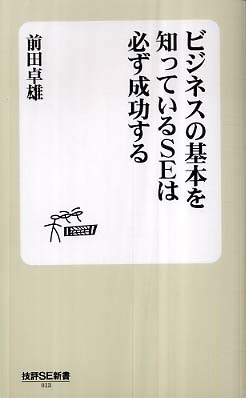 ビジネスの基本を
知っているSEは
必ず成功する
前田卓雄
技評SE新書
013